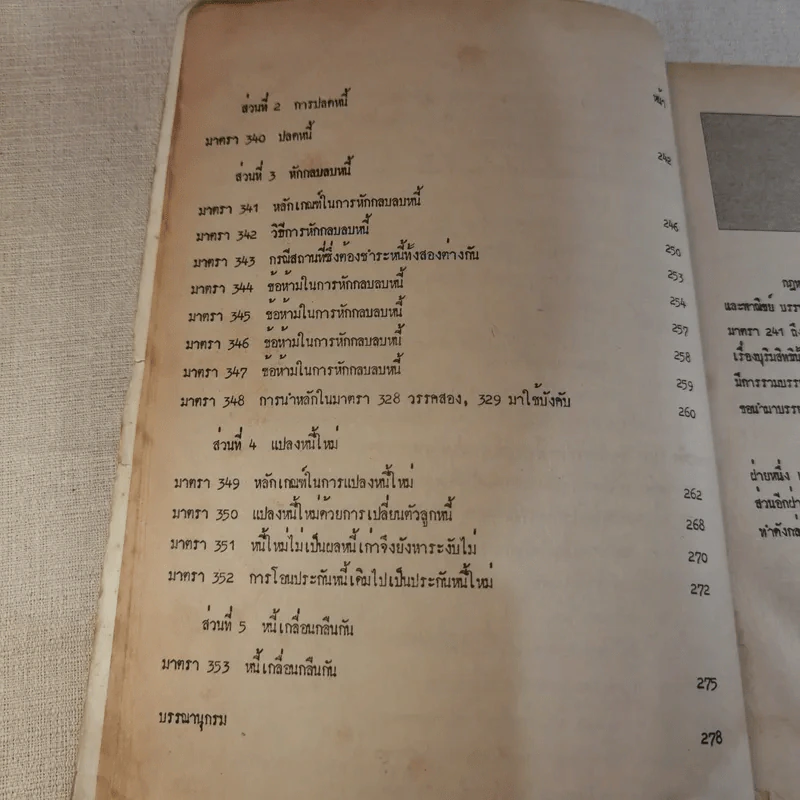 หน้า
ส่วนที่ 2 การปลดหนี้
มาตรา 340 ปลดหนี้ 242
ส่วนที่ 3 หักกลบลบหนี้
มาตรา 341 หลักเกณฑ์ในการหักกลบลบหนี้ 246
มาตรา 342 วิธีการหักกลบลบหนี้ 250
มาตรา 343 กรณีสถานที่ซึ่งต้องชำระหนี้ทั้งสองต่างกัน 253
มาตรา 344 ข้อห้ามในการหักกลบลบหนี้ 254
มาตรา 345 ข้อห้ามในการหักกลบลบหนี้ 257
มาตรา 346 ข้อห้ามในการหักกลบลบหนี้ 258
มาตรา 347 ข้อห้ามในการหักกลบลบหนี้ 259
มาตรา 348 การนำหลักในมาตรา 328 วรรคสอง, 329 มาใช้บังคับ 260
ส่วนที่ 4 แปลงหนี้ใหม่
มาตรา 349 หลักเกณฑ์ในการแปลงหนี้ใหม่ 262
มาตรา 350 แปลงหนี้ใหม่ด้วยการเปลี่ยนตัวลูกหนี้ 268
มาตรา 351 หนี้ใหม่ไม่เป็นผลหนี้เก่าจึงยังหาระงับไม่ 270
มาตรา 352 การโอนประกันหนี้เดิมไปเป็นประกันหนี้ใหม่ 272
ส่วนที่ 5 หนี้เกลื่อนกลืนกัน
มาตรา 353 หนี้เกลื่อนกลืนกัน 275
บรรณานุกรม 278
และพาณิชย์ บรร
มาตรา 241 ถึ
มีการรวมบรร
ขอนำมาบรร
ฝ่ายหนึ่ง
ส่วนอีกฝ่า
ทำดังกล่